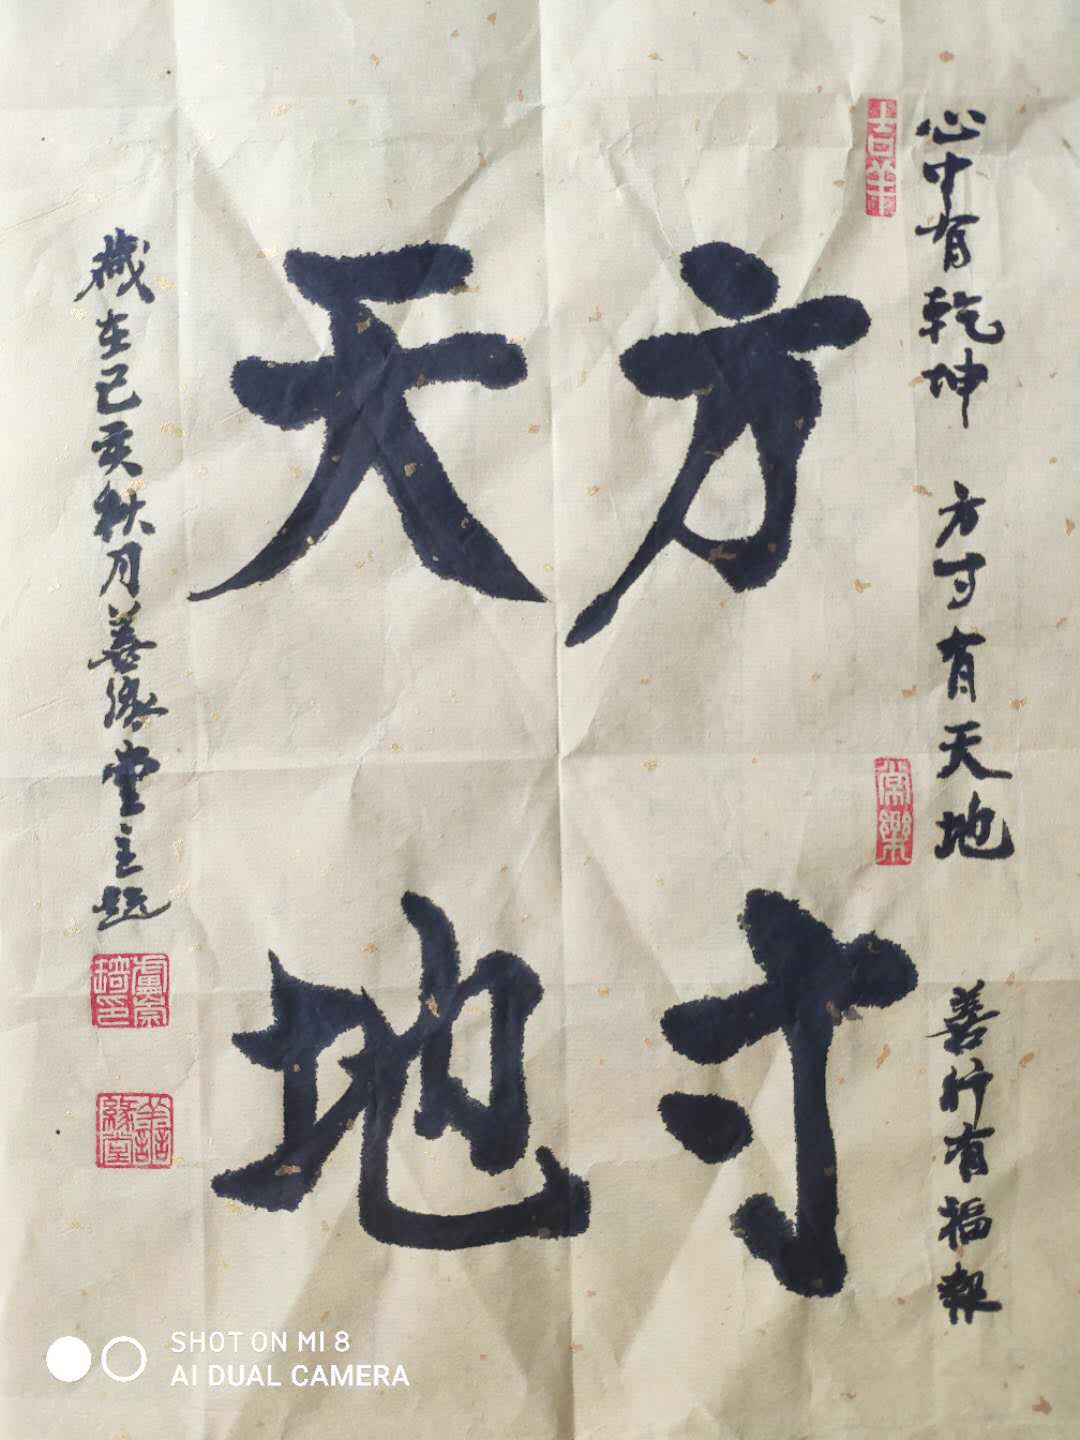 心中有乾坤 方寸有天地 善行有福報
方寸
天地
歲在己亥秋月善緣堂主題
常樂
善緣堂
SHOT ON MI 8
AI DUAL CAMERA